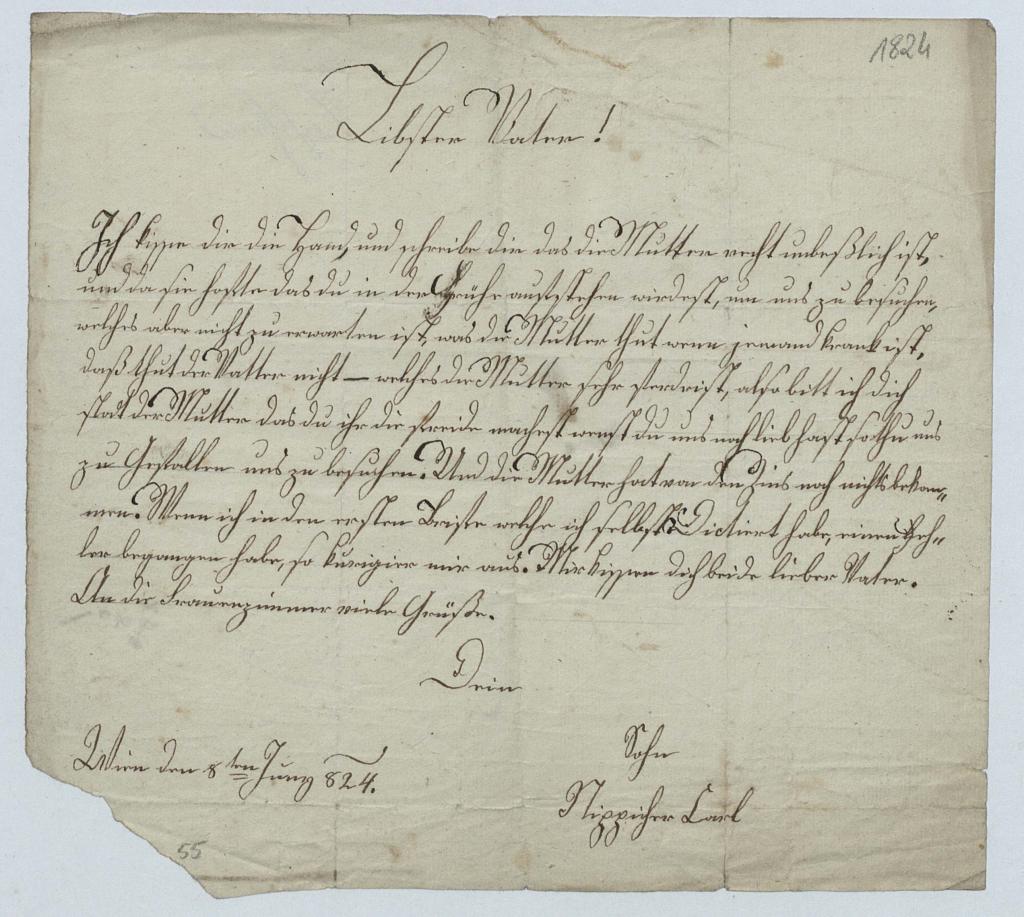 1824
Libster Vater!
Ich küsse dir die Hand, und schreibe dir das die Mutter recht unbeßlich ist,
und da sie hofte das du in der Frühe auftstehen wirdest, um uns zu besuchen,
welches aber nicht zu erwarten ist, was die Mutter thut wenn jemand krank ist,
daß thut der Vatter nicht — welches der Mutter sehr ist, also bitt ich dich
stat der Mutter das du ihr die freide machest wenst du uns noch lieb hast so thu uns
zu Gefallen uns zu besuchen. Und die Mutter hat von den Zins noch nichts bekom„
men. Wenn ich in den ersten Briefe welche ich selbst Dictiert habe, einen Feh„
ler begangen habe, so kurigier mir aus. Mir kissen dich beide lieber Vater.
An die Frauenzimmer viele Grüße.
Dein
Wien den 8ten Juny 824.
Sohn
Nippicher Carl
55